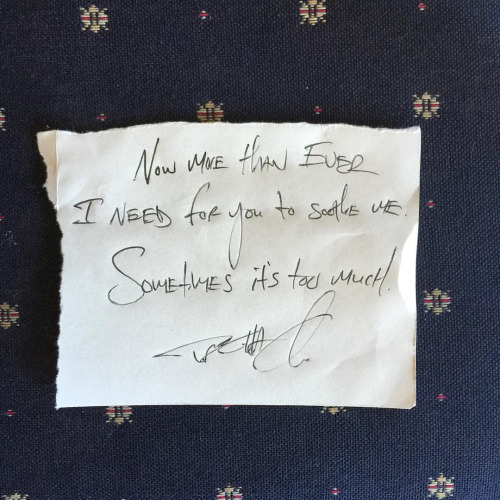 Now more than Ever
I NEED for you to soothe me.
Sometimes it's too much.